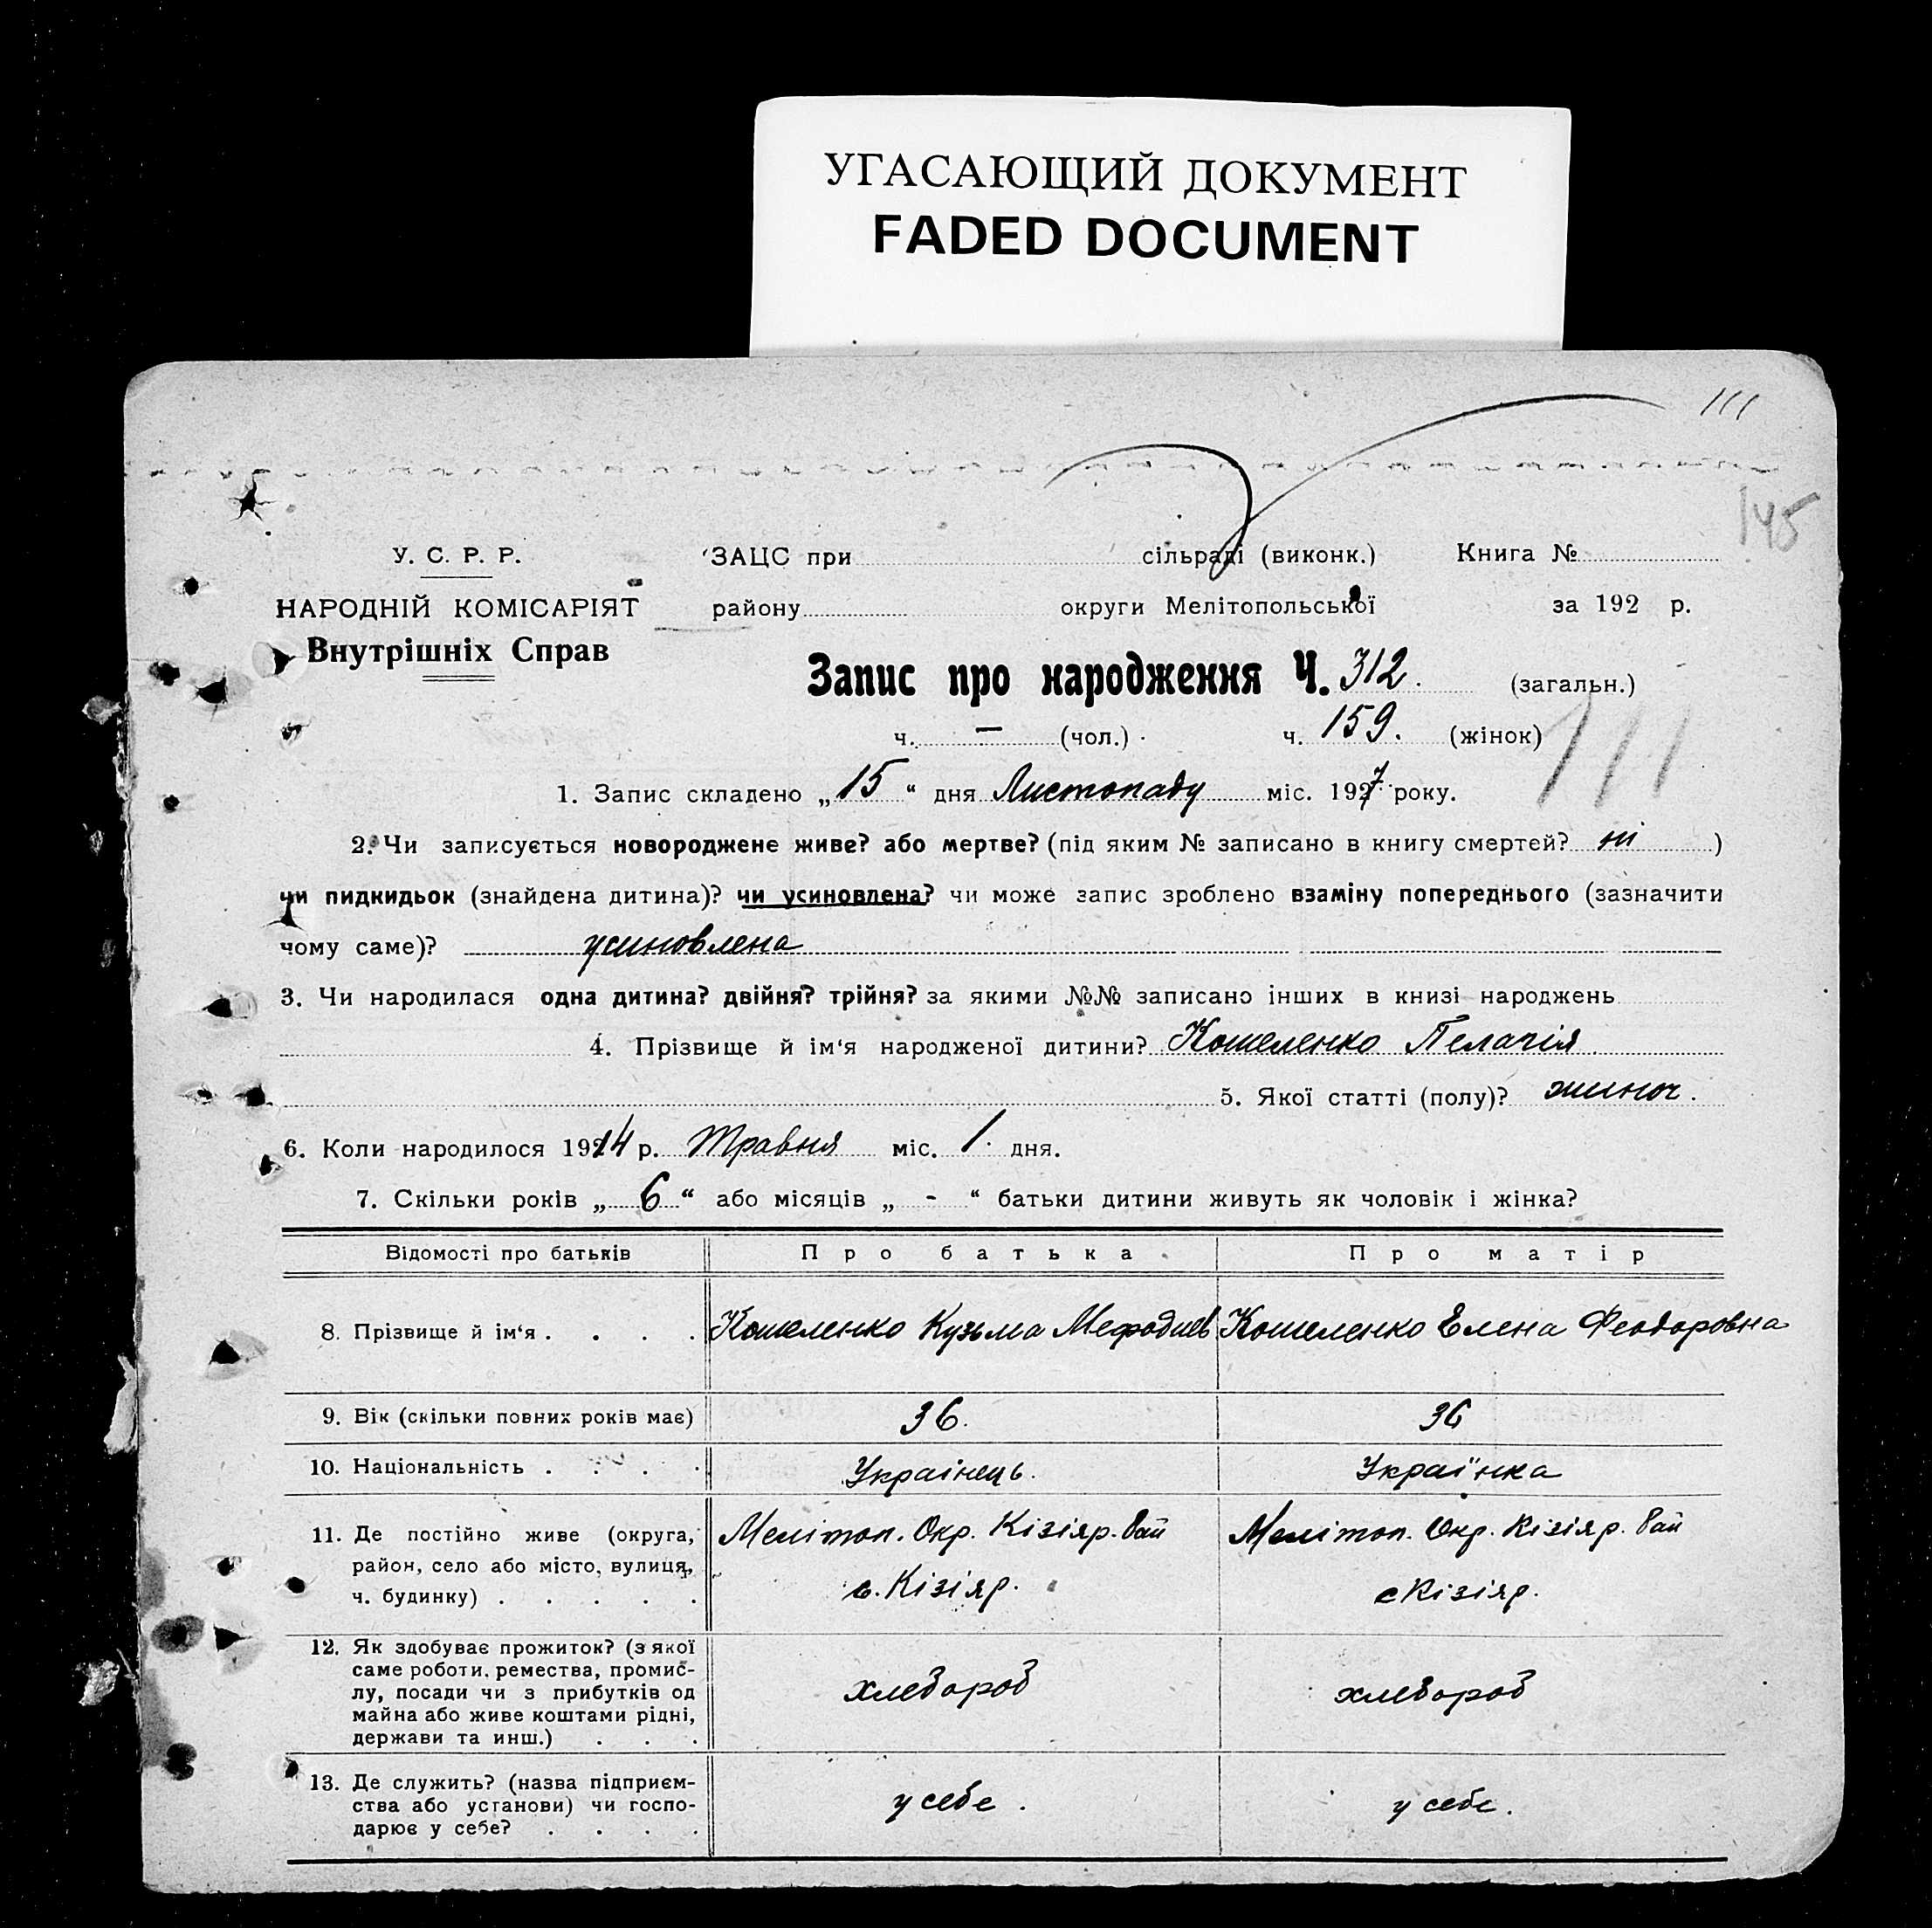 УГАСАЮЩИЙ ДОКУМЕНТ
FADED DOCUMENT
111
145
У. С. Р. Р. ЗАЦС при сільраді (виконк.) Книга №
НАРОДНІЙ КОМІСАРІЯТ району округи Мелітопольської за 192 р.
Внутрішніх Справ
Запис про народження Ч. 312. (загальн.)
ч. — (чол.) ч. 159. (жінок)
111
1. Запис складено „15“ дня Листопаду міс. 1927 року.
2. Чи записується новороджене живе? або мертве? (під яким № записано в книгу смертей? ні )
чи пидкидьок (знайдена дитина)? чи усиновлена? чи може запис зроблено взаміну попереднього (зазначити
чому саме)? усиновлена
3. Чи народилася одна дитина? двійня? трійня? за якими №№ записано інших в книзі народжень
4. Прізвище й ім‘я народженої дитини? Кошеленко Пелагія
5. Якої статті (полу)? жиноч.
6. Коли народилося 1914 р. Травня міс. 1. дня.
7. Скільки років „ 6 “ або місяців „ - “ батьки дитини живуть як чоловік і жінка?
Відомості про батьків Про батька Про матір
8. Прізвище й ім‘я . . . . Кошеленко Кузьма Мефодиев Кошеленко Елена Феодоровна
9. Вік (скільки повних років має) 36. 36
10. Національність . . . . Українець. Українка
11. Де постійно живе (округа, Меліт­оп. Окр. Кізіяр. Рай Мелітоп. Окр. Кізіяр. Рай
район, село або місто, вулиця,
ч. будинку) . . . . . с. Кізіяр. с Кізіяр.
12. Як здобуває прожиток? (з якої
саме роботи, ремества, промис-
лу, посади чи з прибутків од хлебороб хлебороб
майна або живе коштами рідні,
держави та инш.) . . .
13. Де служить? (назва підприєм-
ства або установи) чи госпо- у себе. у себе.
дарює у себе? . . . .